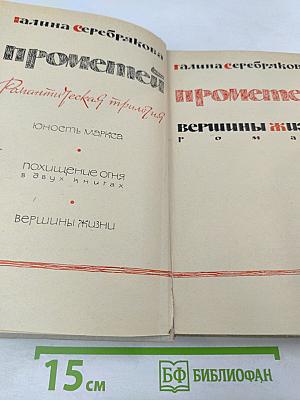 Галина Серебрякова
Прометей
Романтическая трилогия
Юность Маркса
Похищение огня
в двух книгах
Вершины жизни
Галина Серебряков
Промете
Вершины жиз
рома
15 см
БФ БИБЛИОФАН